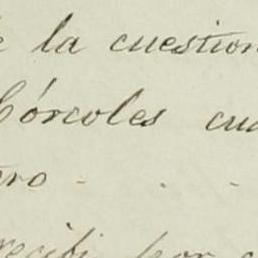 e la cuestion
Córcoles cua
ero - . -
recibi por